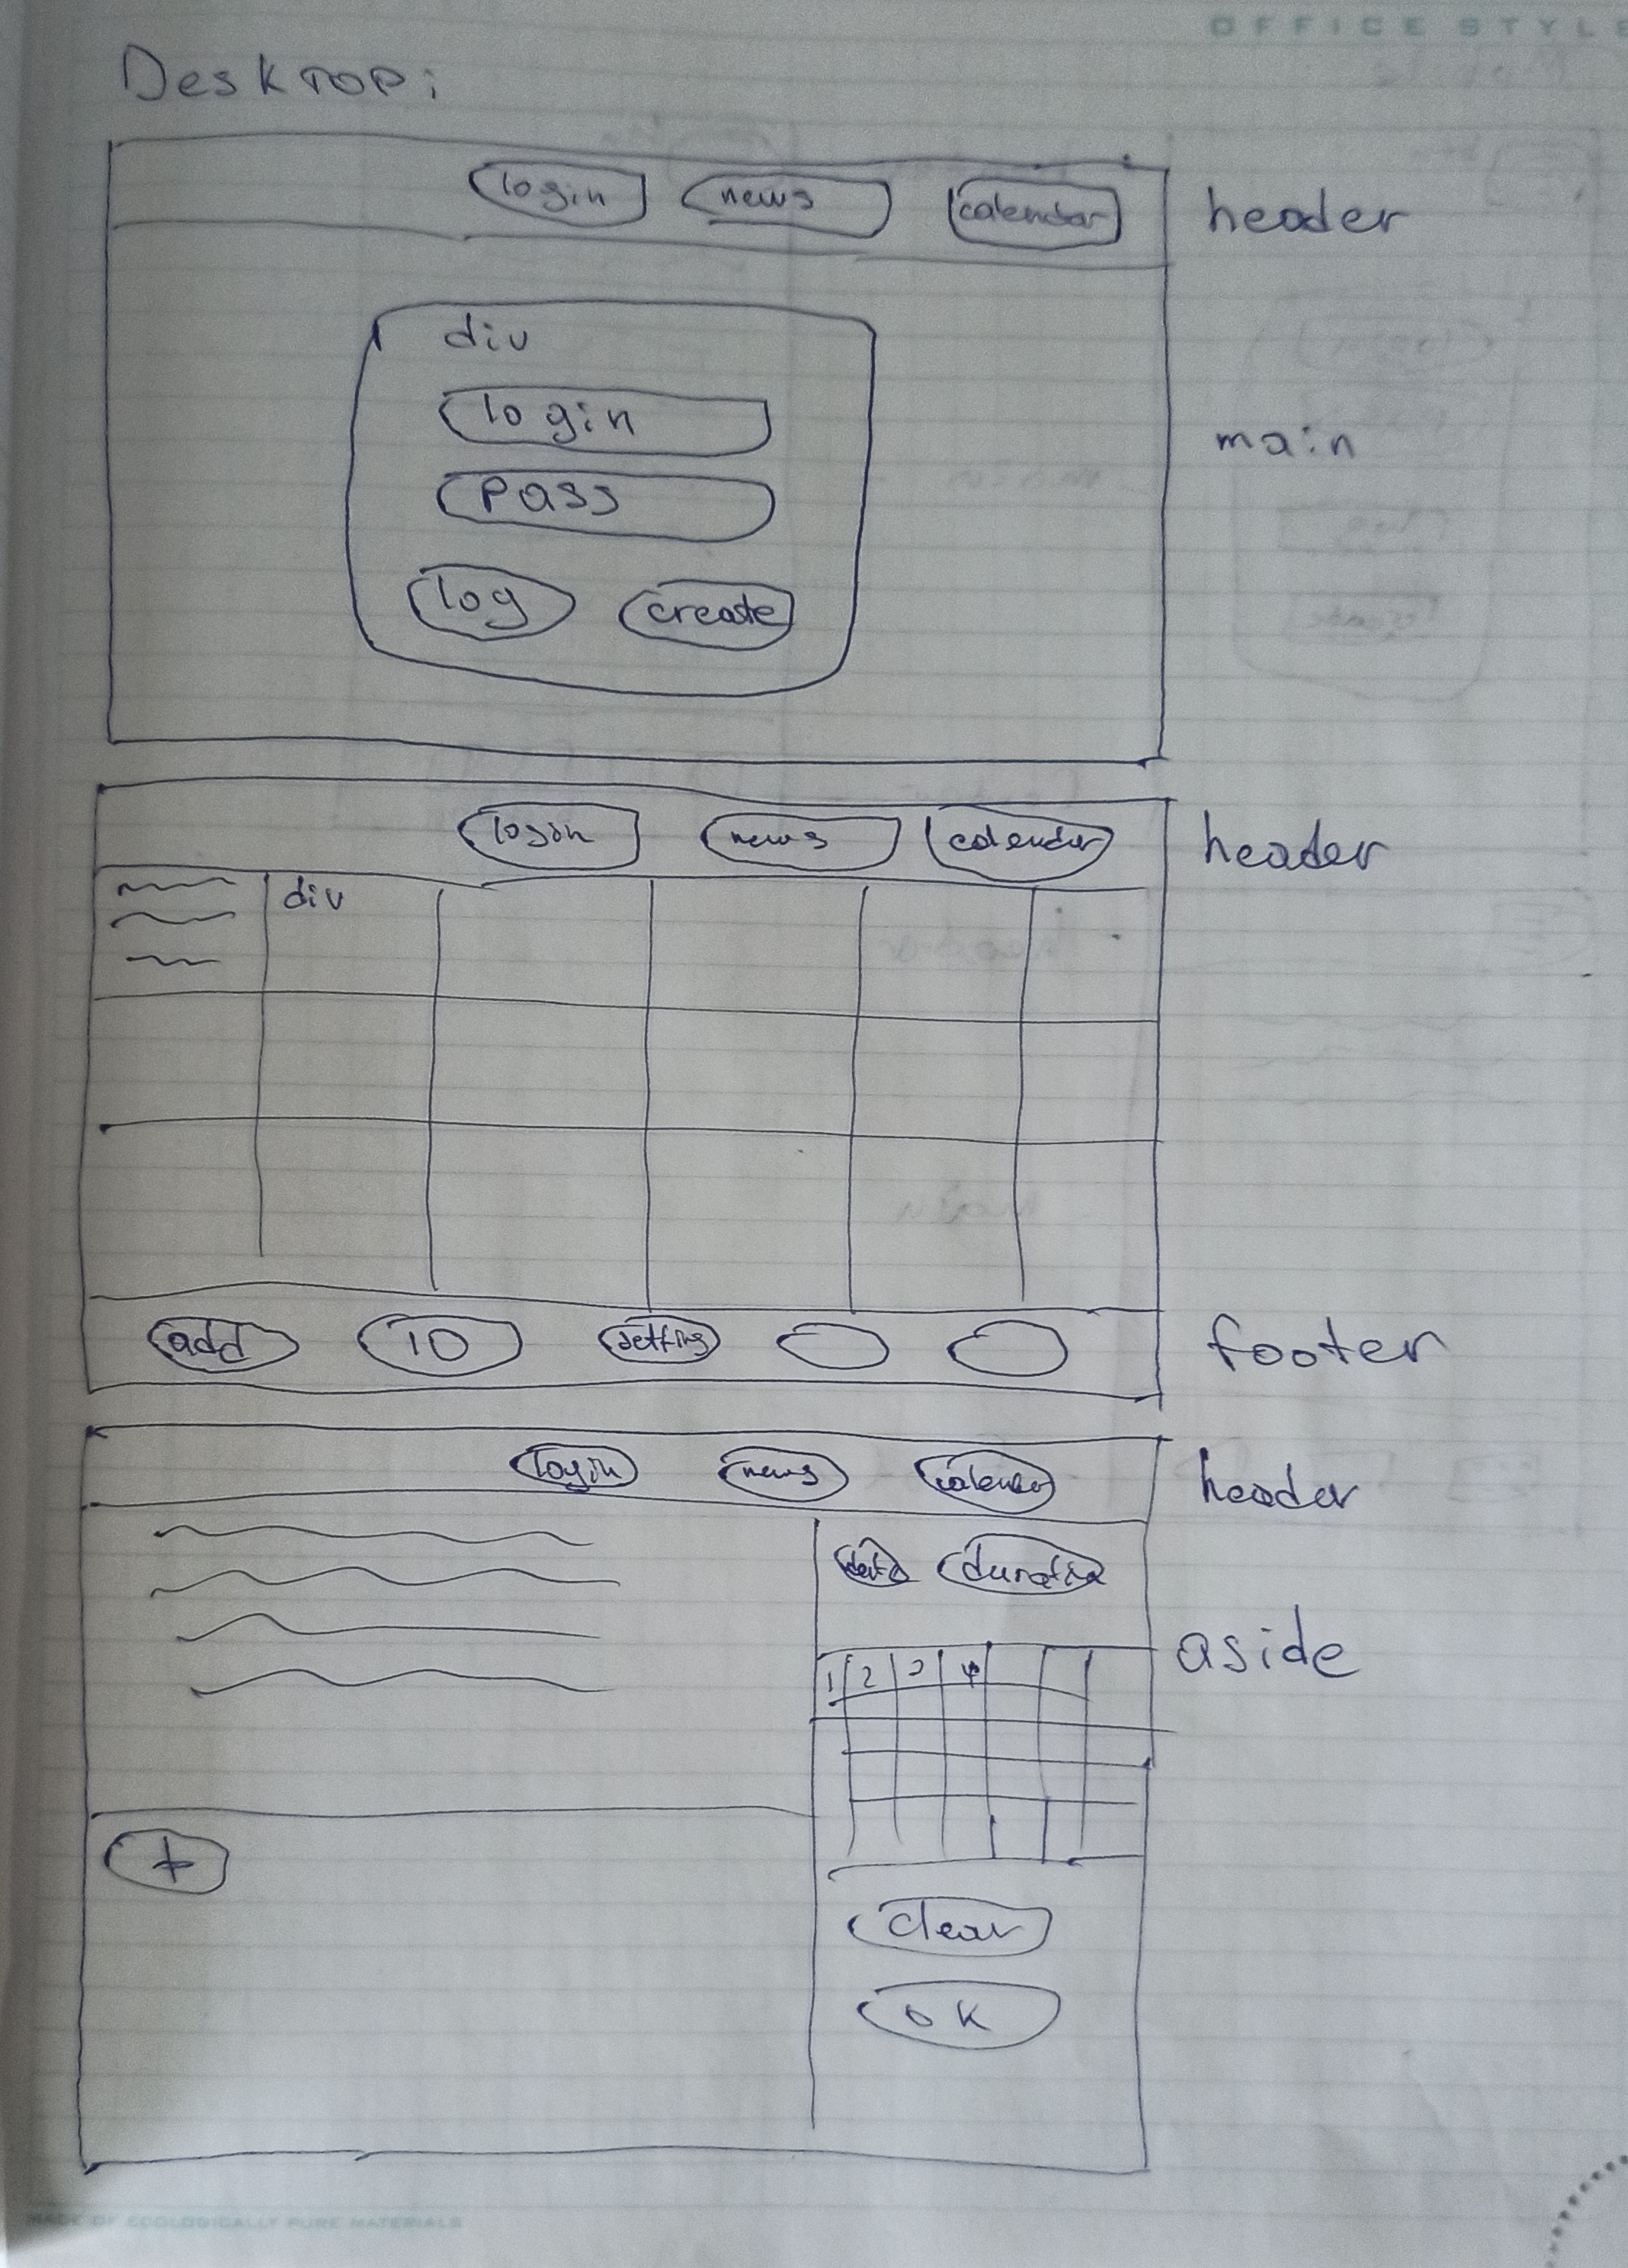 OFFICE STYLE
Desktop:
login news calendar header
div
login
main
pass
log create
login news calendar header
div
add ID setting footer
login news header
date
aside
1 2 3 4
+
clear
OK
MADE OF ECOLOGICALLY PURE MATERIALS